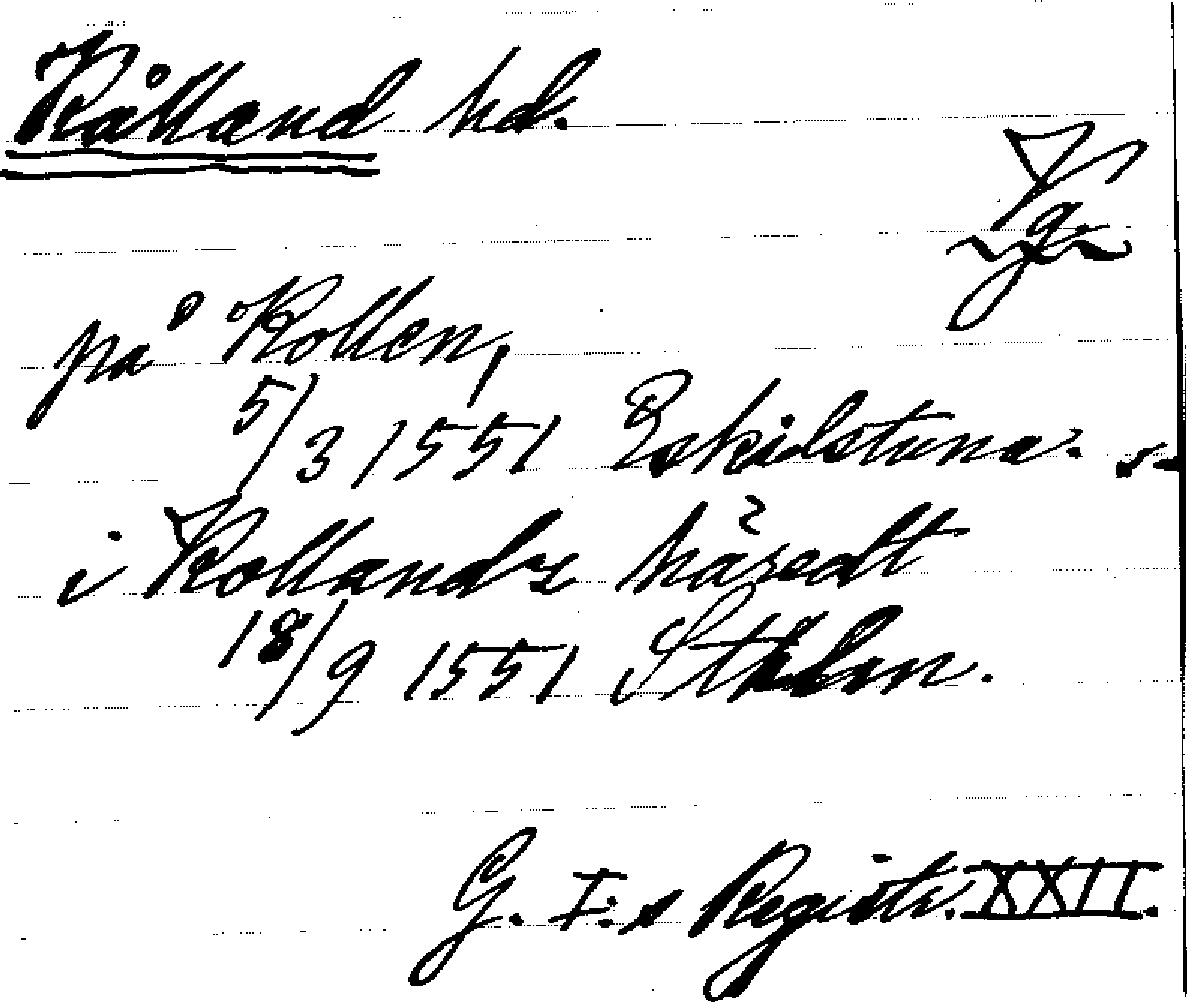 Kålland hd.
Vg.
på Kollen,
5/3 1551 Eskilstuna.
i Kollandz häredt
18/9 1551 Sthlm.
G. I:s Registr. XXII.